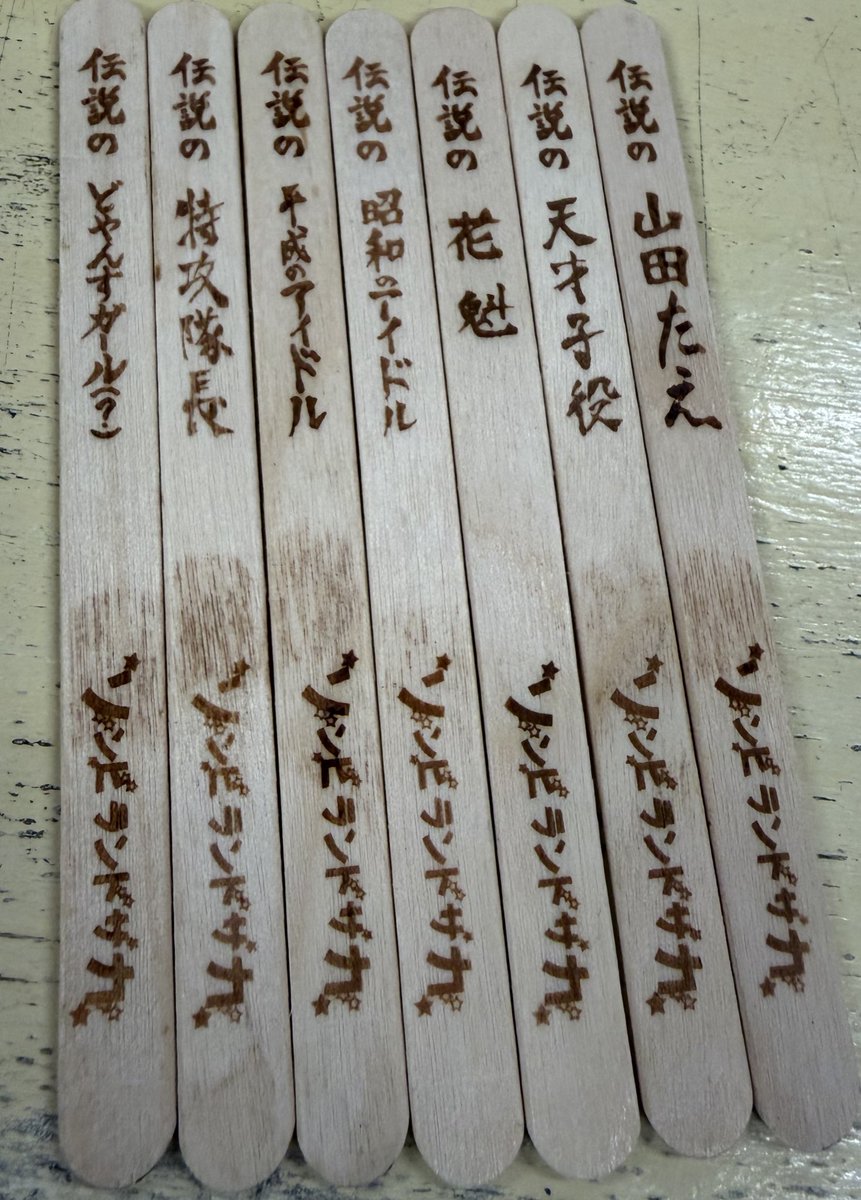 伝説の 山田たえ
ゾンビランドサガ
伝説の 天才子役
ゾンビランドサガ
伝説の 花魁
ゾンビランドサガ
伝説の 昭和のアイドル
ゾンビランドサガ
伝説の 平成のアイドル
ゾンビランドサガ
伝説の 特攻隊長
ゾンビランドサガ
伝説の どやんすガール(?)
ゾンビランドサガ